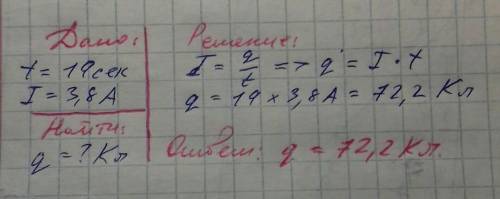 Дано:
t = 19 сек
I = 3,8 А
Найти:
q = ? Кл
Решение:
I = q/t => q = I · t
q = 19 × 3,8 А = 72,2 Кл
Ответ: q = 72,2 Кл.